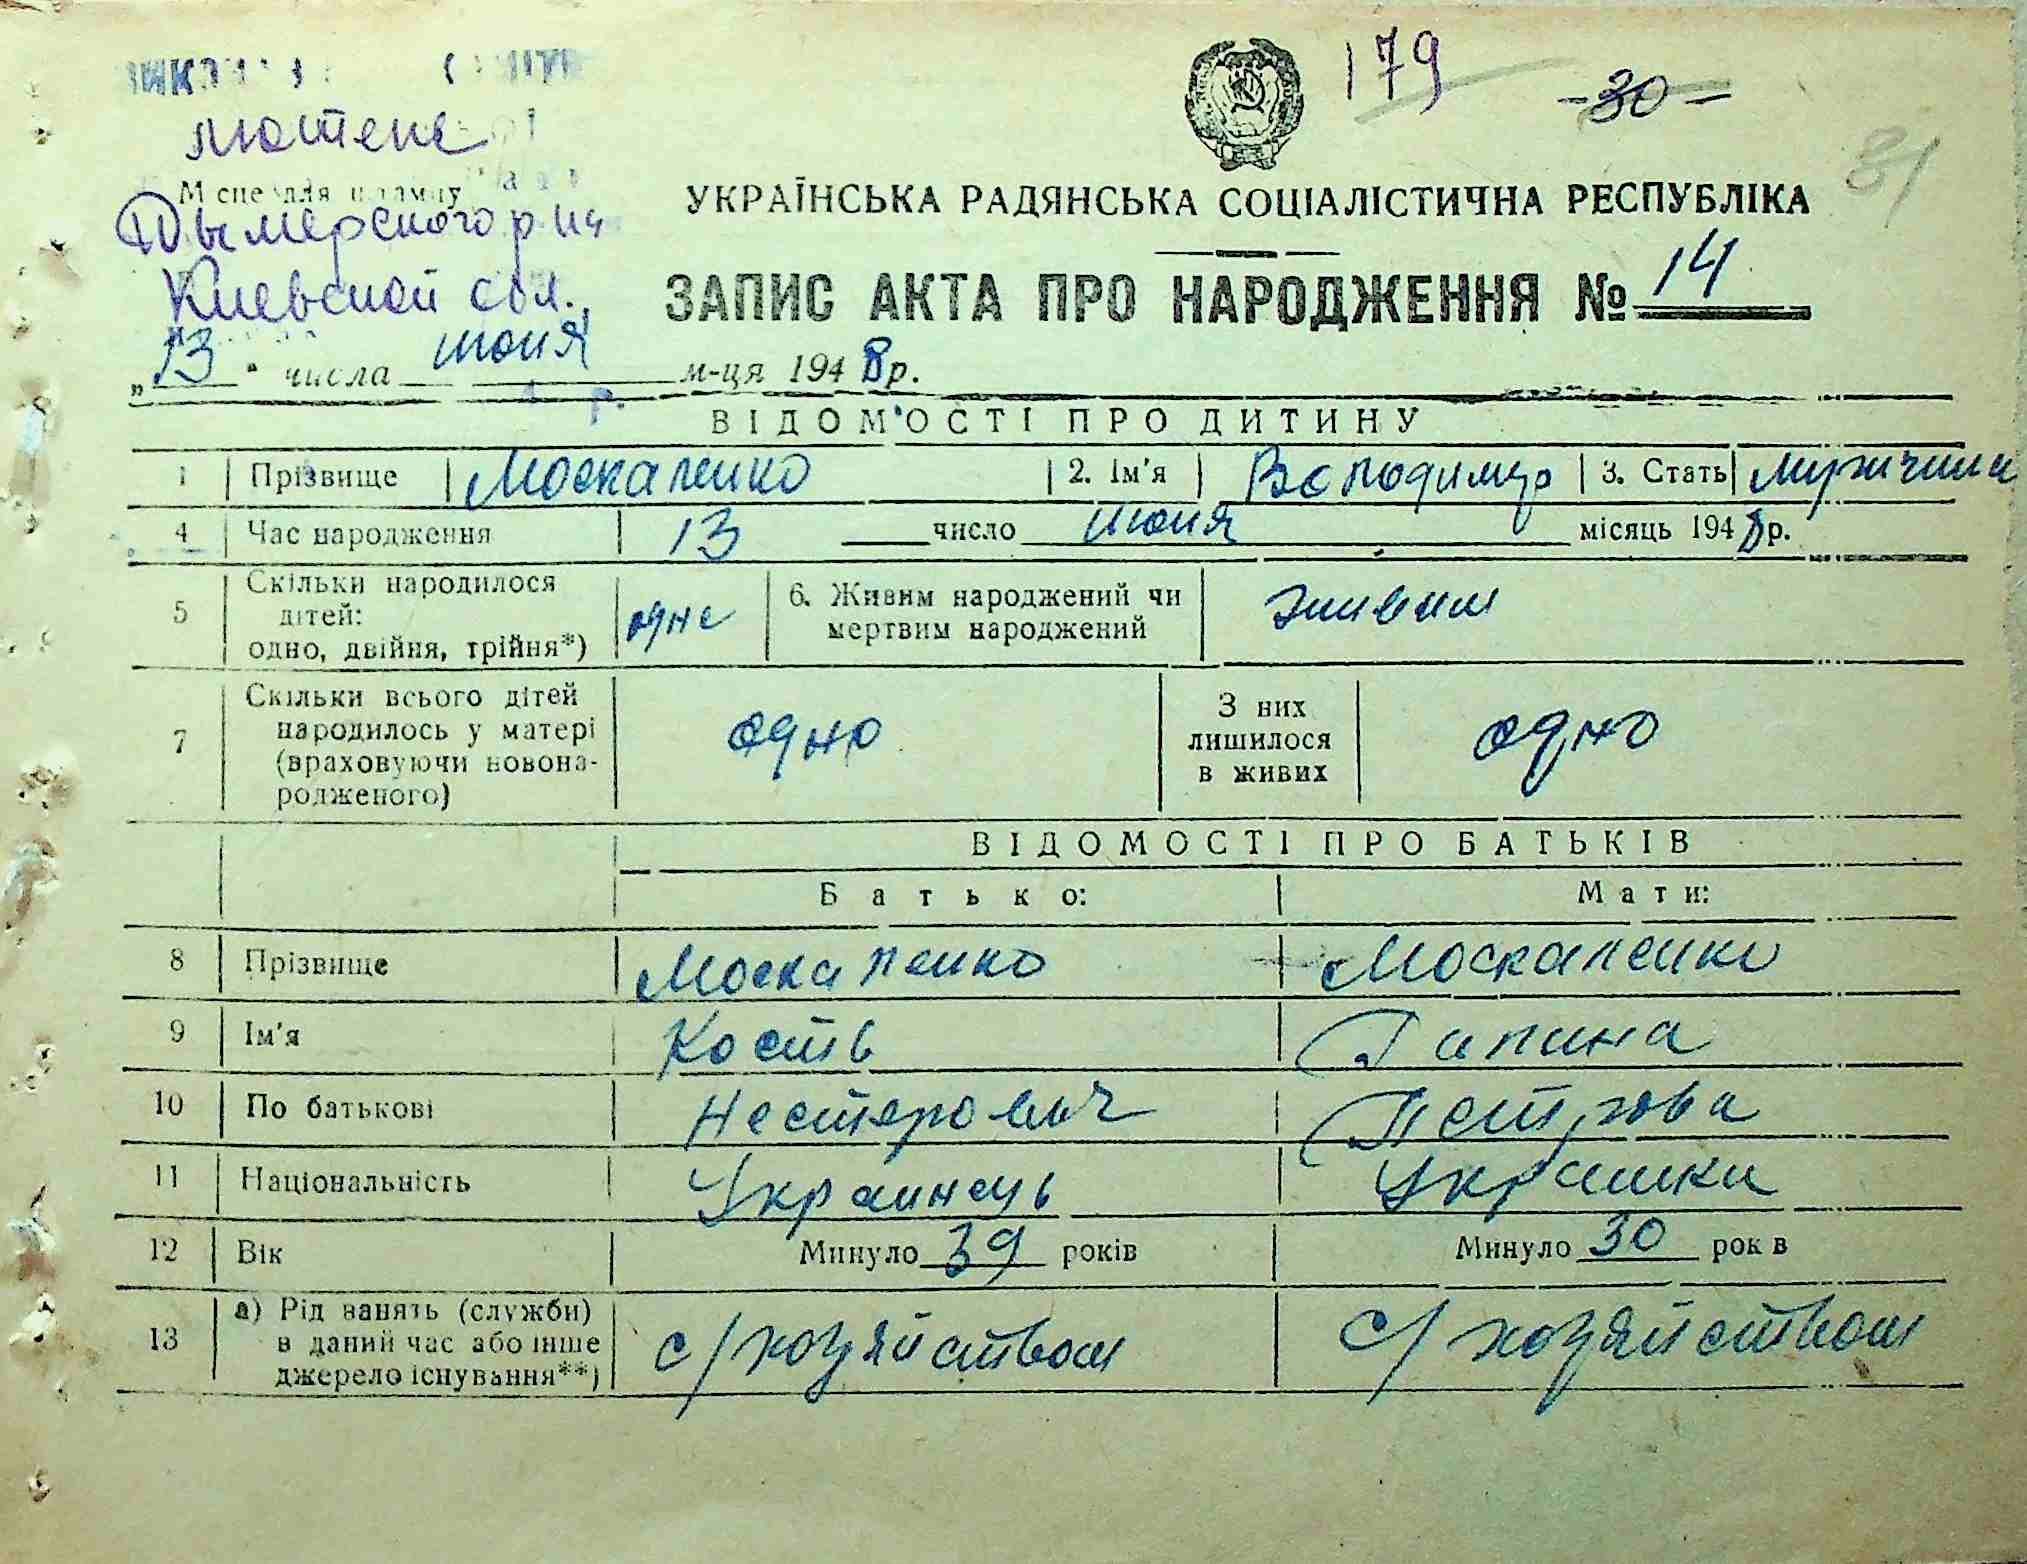 179 -30-
31
лютене
Місце для штампу
Дымерского р на
Киевской обл.
УКРАЇНСЬКА РАДЯНСЬКА СОЦІАЛІСТИЧНА РЕСПУБЛІКА
ЗАПИС АКТА ПРО НАРОДЖЕННЯ № 14
„13“ числа июня м-ця 1948р.
ВІДОМОСТІ ПРО ДИТИНУ
1 Прізвище Москаленко 2. Ім'я Володимир 3. Стать мужчина
4 Час народження 13 число июня місяць 1948р.
5 Скільки народилося дітей: одно, двійня, трійня*) одне 6. Живим народжений чи мертвим народжений живим
7 Скільки всього дітей народилось у матері (враховуючи новонародженого) одно З них лишилося в живих одно
ВІДОМОСТІ ПРО БАТЬКІВ
Батько: Мати:
8 Прізвище Москаленко Москаленко
9 Ім'я Кость Галина
10 По батькові Нестерович Петрова
11 Національність Украинець Украинка
12 Вік Минуло 39 років Минуло 30 років
13 а) Рід занять (служби) в даний час або інше джерело існування**) с/хозяйством с/хозяйством